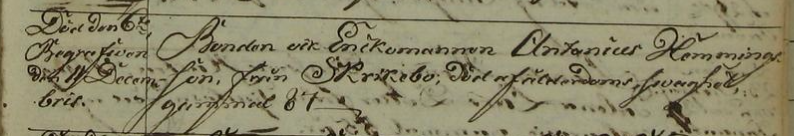 Död den 6te
Begrafwen
den 11 Decem-
bris.
Bonden ock Enckomannen Antonius Hemmings-
Son, från Skrikebo, Död af ålderdoms swaghet,
gammal 87